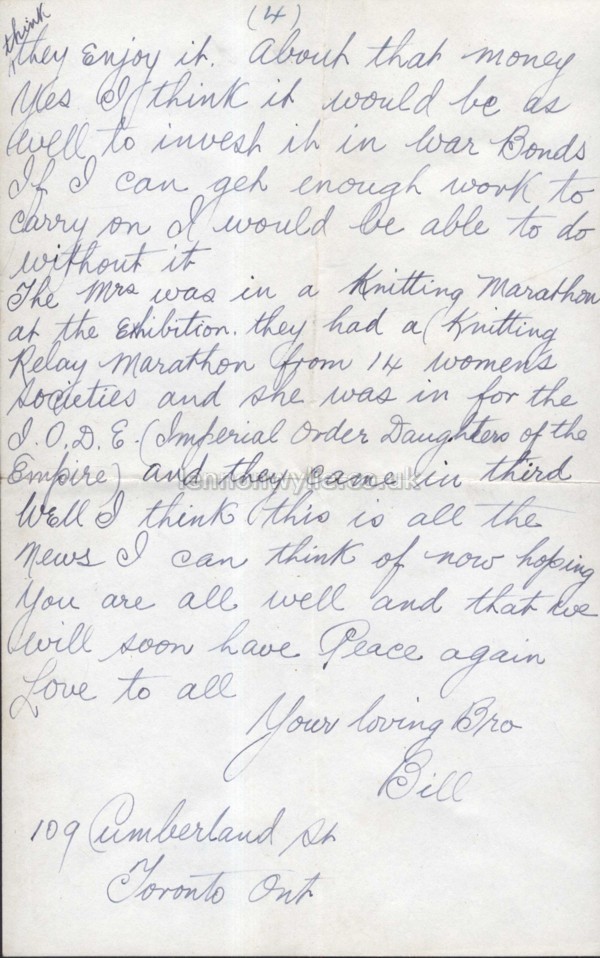 (4)
think
they Enjoy it. About that money
Yes I think it would be as
well to invest it in War Bonds
If I can get enough work to
carry on I would be able to do
without it
The Mrs was in a Knitting Marathon
at the Exhibition. they had a Knitting
Relay Marathon from 14 womens
Societies and she was in for the
I.O.D.E. (Imperial Order Daughters of the
Empire) and they came in third
lennonwylie.co.uk
Well I think this is all the
News I can think of now hoping
you are all well and that we
will soon have Peace again
Love to all
Your loving Bro
Bill
109 Cumberland St
Toronto Ont